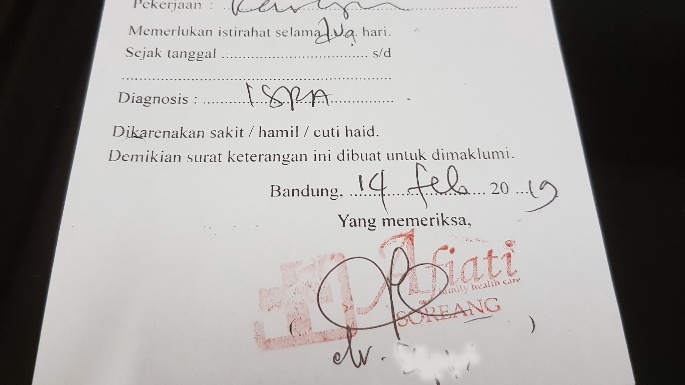 Pekerjaan : Karyn
Memerlukan istirahat selama dua hari.
Sejak tanggal .................................... s/d
....................................................................
Diagnosis : ISPA
Dikarenakan sakit / hamil / cuti haid.
Demikian surat keterangan ini dibuat untuk dimaklumi.
Bandung, 14 feb 2019
Yang memeriksa,
Afiati
family health care
SOREANG
( )
dr.